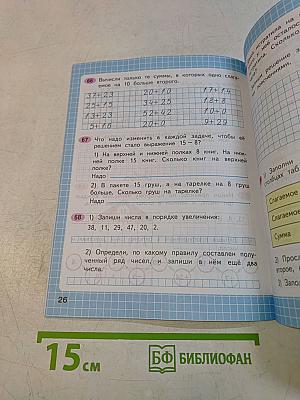 66 Вычисли только те суммы, в которых одно слага-
емое на 10 больше второго.
37+23 20+10 17+14
25+15 34+25 18+8
13+23 52+42 10+0
5+16 20+0 9+29
67 Что надо изменить в каждой задаче, чтобы её
решением стало выражение 15 – 8?
1) На верхней и нижней полках 8 книг. На ниж-
ней полке 15 книг. Сколько книг на верхней
полке?
Надо
2) В пакете 15 груш, а на тарелке на 8 груш
больше. Сколько груш на тарелке?
Надо
68 1) Запиши числа в порядке увеличения:
38, 11, 29, 47, 20, 2.
2) Определи, по какому правилу составлен полу-
ченный ряд чисел, и запиши в нём ещё два
числа.
26
Заполни
Слагаемое
Слагаемое
Сумма
2) Просл
второе,
3) Запо
15 см
БФ БИБЛИОФАН